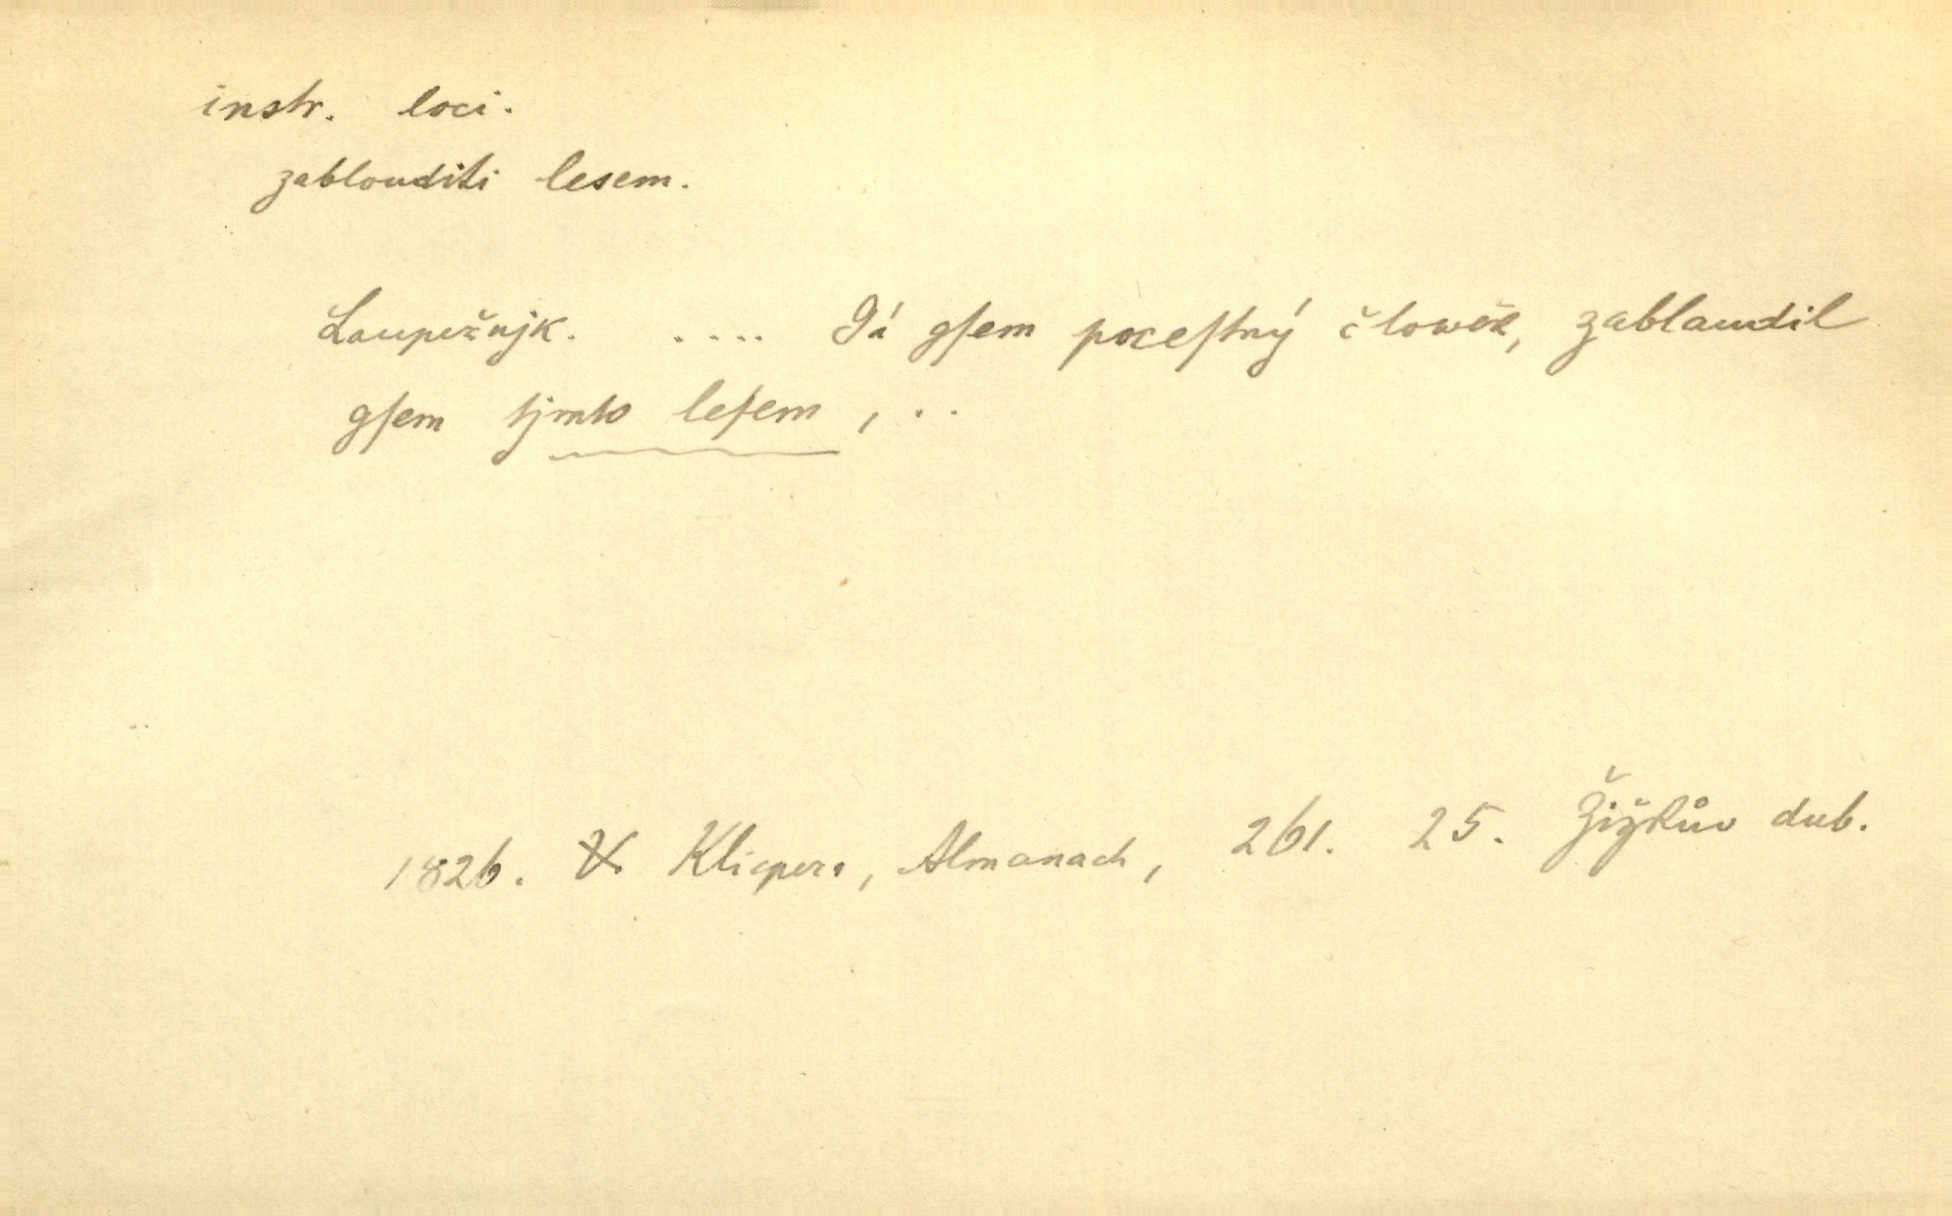 instr. loci.
zablouditi lesem.
Laupežnjk. .... Já gſem poceſtný člowěk, zablaudil
gſem tjmto leſem, ..
1826. V. Klicpera, Almanach, 261. 25. Žižkův dub.